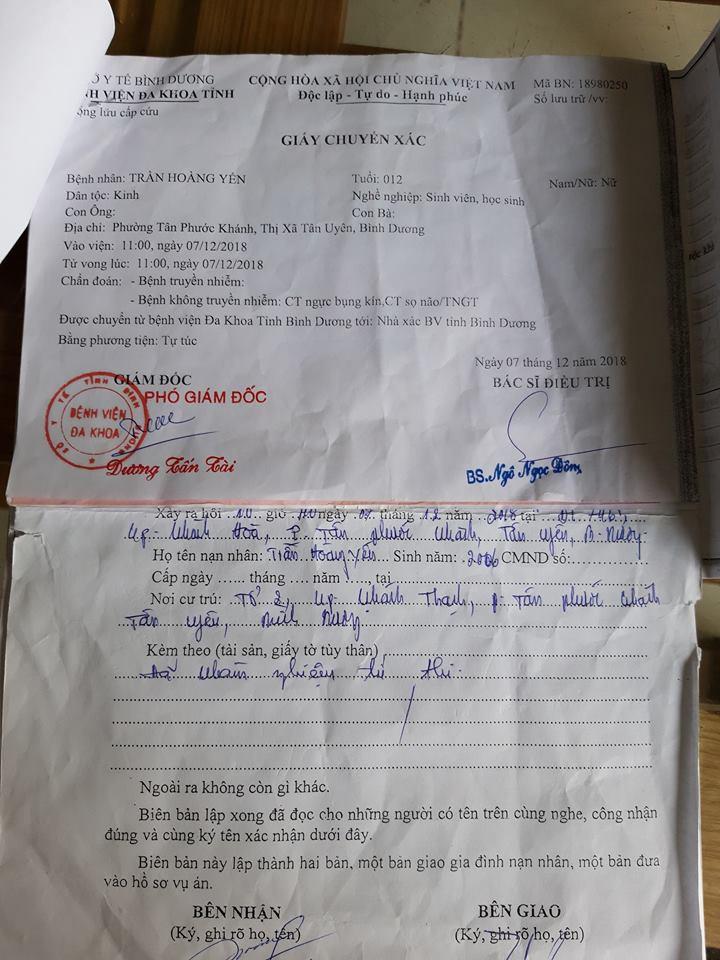 Ở Y TẾ BÌNH DƯƠNG
NH VIỆN ĐA KHOA TỈNH
ộng lưu cấp cứu
CỘNG HÒA XÃ HỘI CHỦ NGHĨA VIỆT NAM
Độc lập - Tự do - Hạnh phúc
Mã BN: 18980250
Số lưu trữ /vv:
GIẤY CHUYỂN XÁC
Bệnh nhân: TRẦN HOÀNG YẾN Tuổi: 012 Nam/Nữ: Nữ
Dân tộc: Kinh Nghề nghiệp: Sinh viên, học sinh
Con Ông: Con Bà:
Địa chỉ: Phường Tân Phước Khánh, Thị Xã Tân Uyên, Bình Dương
Vào viện: 11:00, ngày 07/12/2018
Tử vong lúc: 11:00, ngày 07/12/2018
Chẩn đoán: - Bệnh truyền nhiễm:
- Bệnh không truyền nhiễm: CT ngực bụng kín,CT sọ não/TNGT
Được chuyển từ bệnh viện Đa Khoa Tỉnh Bình Dương tới: Nhà xác BV tỉnh Bình Dương
Bằng phương tiện: Tự túc
Ngày 07 tháng 12 năm 2018
GIÁM ĐỐC
BÁC SĨ ĐIỀU TRỊ
PHÓ GIÁM ĐỐC
BỆNH VIỆN
ĐA KHOA
Dương Tấn Tài
BS.Ngô Ngọc
Xảy ra hồi giờ ngày 07 tháng 12 năm 2018 tại
Khánh Hoà, P. Tân phước khánh, Tân uyên, B. Dương
Họ tên nạn nhân: Trần Hoàng Yến Sinh năm: 2006 CMND số:
Cấp ngày ...... tháng .... năm ......, tại
Nơi cư trú: Tổ 2, Khánh Thạnh, p. Tân phước khánh
Tân uyên, Bình Dương
Kèm theo (tài sản, giấy tờ tùy thân)
khám nghiệm tử thi
Ngoài ra không còn gì khác.
Biên bản lập xong đã đọc cho những người có tên trên cùng nghe, công nhận
đúng và cùng ký tên xác nhận dưới đây.
Biên bản này lập thành hai bản, một bản giao gia đình nạn nhân, một bản đưa
vào hồ sơ vụ án.
BÊN NHẬN BÊN GIAO
(Ký, ghi rõ họ, tên) (Ký, ghi rõ họ, tên)